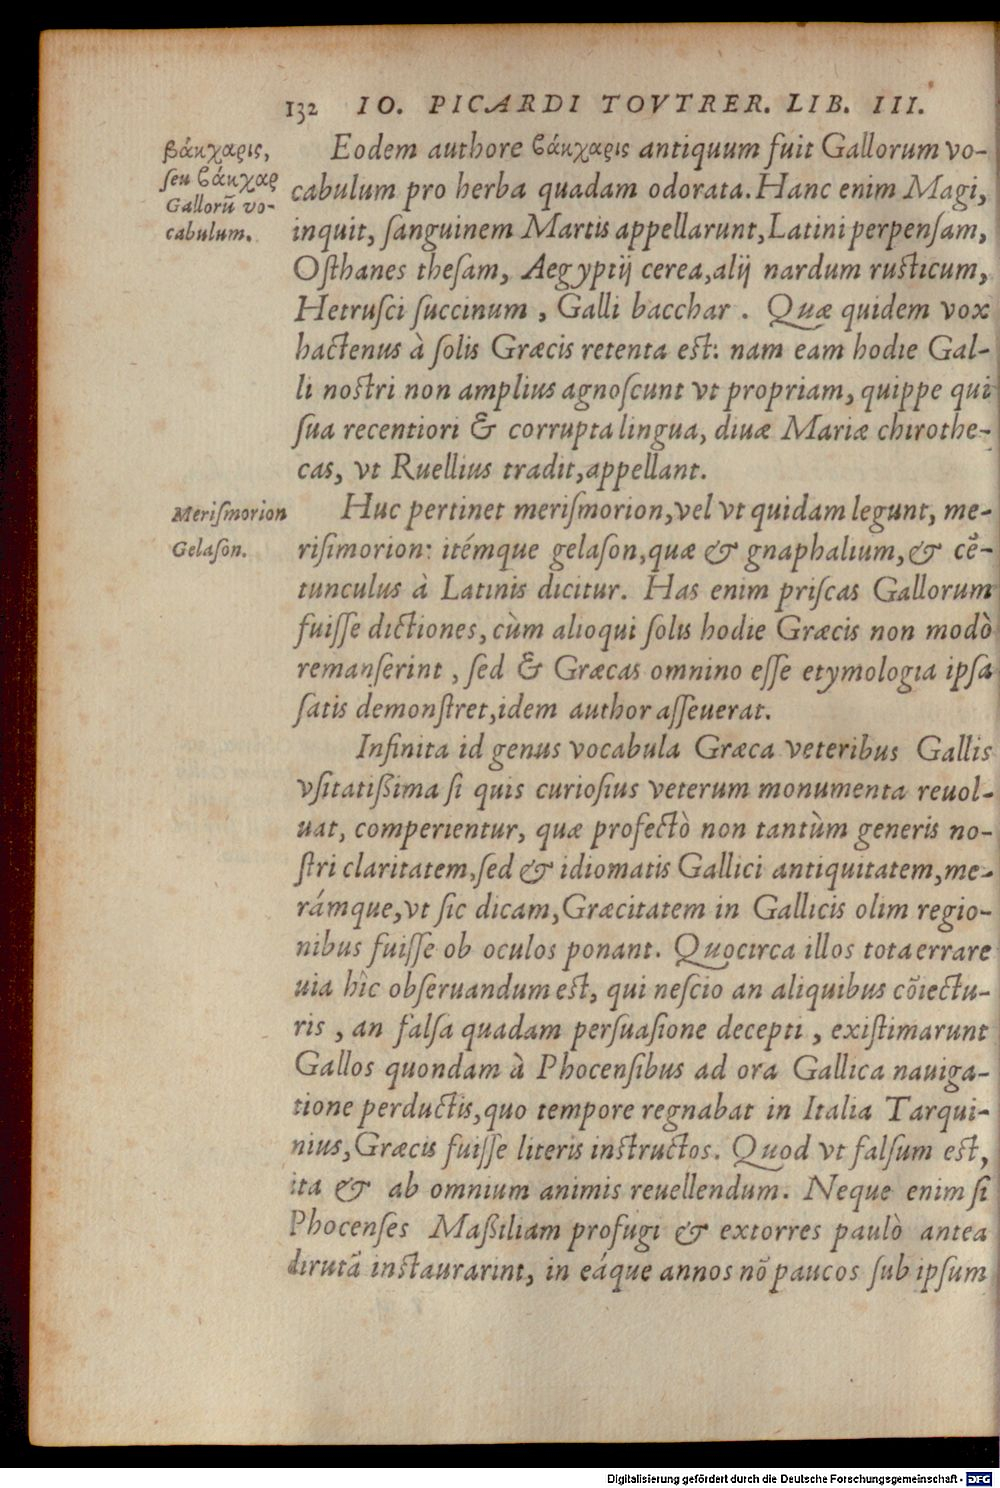 132 IO. PICARDI TOVTRER. LIB. III.
βάκχαρις,
ſeu βάκχαρ
Gallorū vo-
cabulum.
Eodem authore βάκχαρις antiquum fuit Gallorum vo-
cabulum pro herba quadam odorata. Hanc enim Magi,
inquit, ſanguinem Martis appellarunt, Latini perpenſam,
Oſthanes theſam, Aegyptij cerea, alij nardum ruſticum,
Hetruſci ſuccinum, Galli bacchar. Quæ quidem vox
hactenus à ſolis Græcis retenta eſt: nam eam hodie Gal-
li noſtri non amplius agnoſcunt vt propriam, quippe qui
ſua recentiori & corrupta lingua, diuæ Mariæ chirothe-
cas, vt Ruellius tradit, appellant.
Meriſmorion
Gelaſon.
Huc pertinet meriſmorion, vel vt quidam legunt, me-
riſimorion: itémque gelaſon, quæ & gnaphalium, & cē-
tunculus à Latinis dicitur. Has enim priſcas Gallorum
fuiſſe dictiones, cùm alioqui ſolis hodie Græcis non modò
remanſerint, ſed & Græcas omnino eſſe etymologia ipſa
ſatis demonſtret, idem author aſſeuerat.
Infinita id genus vocabula Græca veteribus Gallis
vſitatißima ſi quis curioſius veterum monumenta reuol-
uat, comperientur, quæ profectò non tantùm generis no-
ſtri claritatem, ſed & idiomatis Gallici antiquitatem, me-
rámque, vt ſic dicam, Græcitatem in Gallicis olim regio-
nibus fuiſſe ob oculos ponant. Quocirca illos tota errare
uia hîc obſeruandum eſt, qui neſcio an aliquibus cōiectu-
ris, an falſa quadam perſuaſione decepti, exiſtimarunt
Gallos quondam à Phocenſibus ad ora Gallica nauiga-
tione perductis, quo tempore regnabat in Italia Tarqui-
nius, Græcis fuiſſe literis inſtructos. Quod vt falſum eſt,
ita & ab omnium animis reuellendum. Neque enim ſi
Phocenſes Maßiliam profugi & extorres paulò antea
dirutā inſtaurarint, in eáque annos nō paucos ſub ipſum
Digitalisierung gefördert durch die Deutsche Forschungsgemeinschaft - DFG